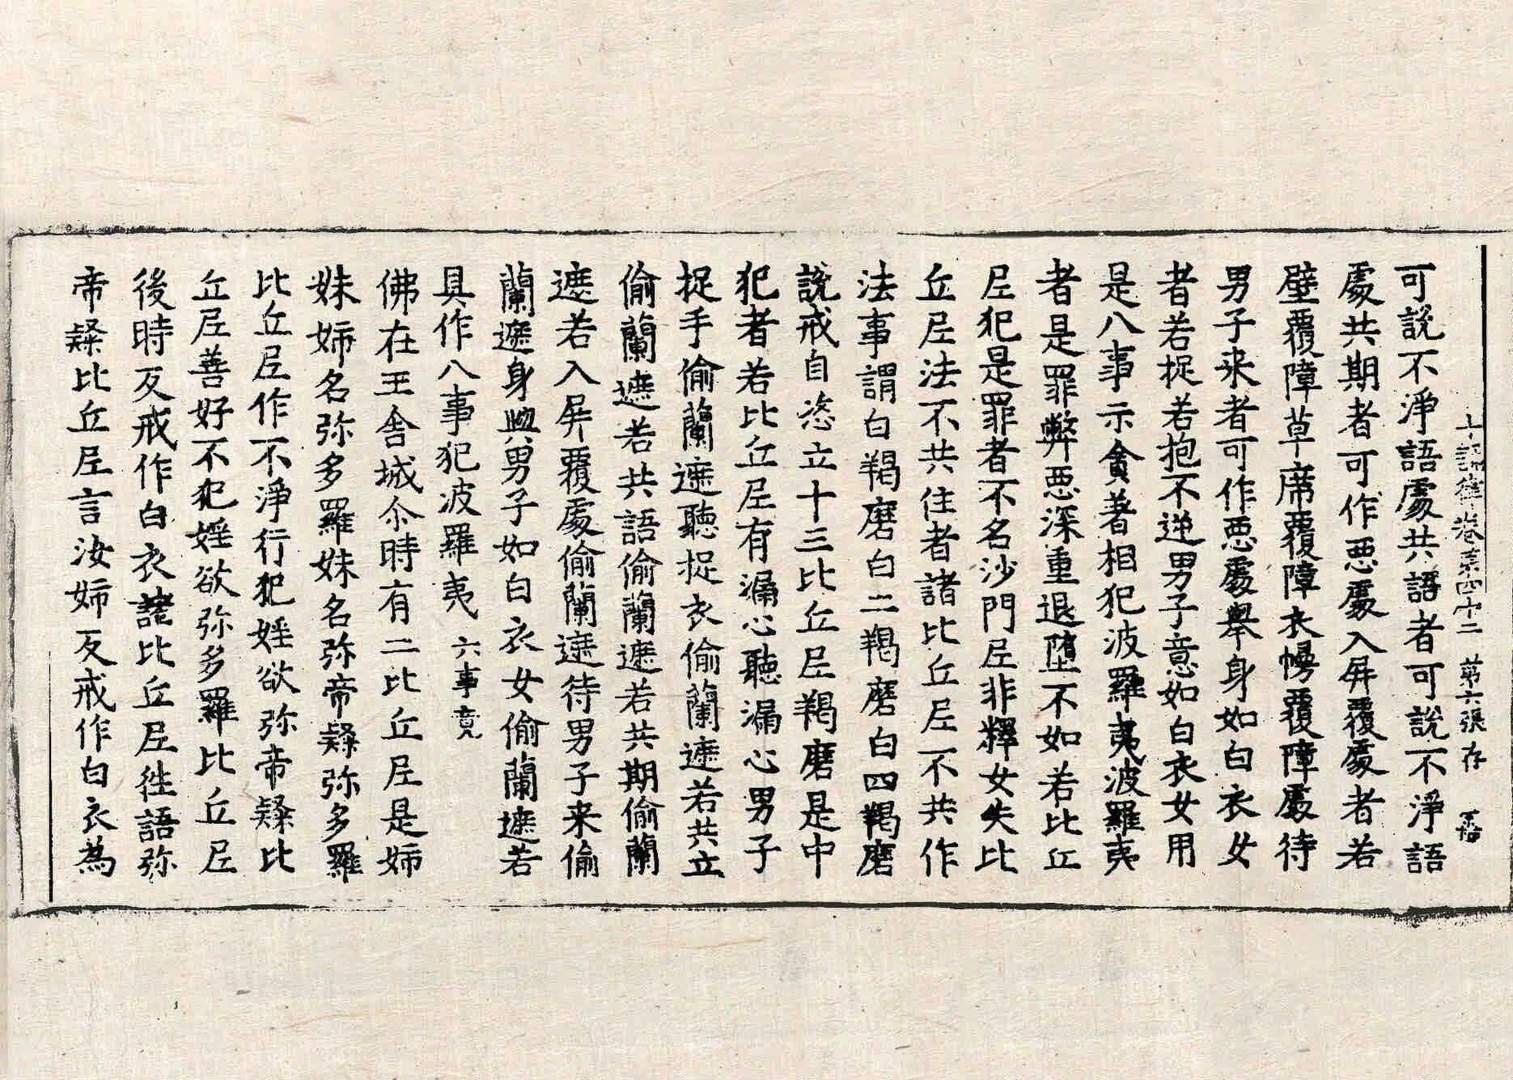 十誦律卷第四十二 第六張 存
可說不淨語處共語者可說不淨語
處共期者可作惡處入屏覆處者若
壁覆障草席覆障衣幔覆障處待
男子来者可作惡處舉身如白衣女
者若捉若抱不逆男子意如白衣女用
是八事示貪著相犯波羅夷波羅夷
者是罪弊惡深重退墮不如若比丘
尼犯是罪者不名沙門尼非釋女失比
丘尼法不共住者諸比丘尼不共作
法事謂白羯磨白二羯磨白四羯磨
說戒自恣立十三比丘尼羯磨是中
犯者若比丘尼有漏心聽漏心男子
捉手偷蘭遮聽捉衣偷蘭遮若共立
偷蘭遮若共語偷蘭遮若共期偷蘭
遮若入屏覆處偷蘭遮待男子来偷
蘭遮身與男子如白衣女偷蘭遮若
具作八事犯波羅夷 六事竟
佛在王舍城尒時有二比丘尼是姉
妹姉名弥多羅妹名弥帝隸弥多羅
比丘尼作不淨行犯婬欲弥帝隸比
丘尼善好不犯婬欲弥多羅比丘尼
後時反戒作白衣諸比丘尼往語弥
帝隸比丘尼言汝姉反戒作白衣為